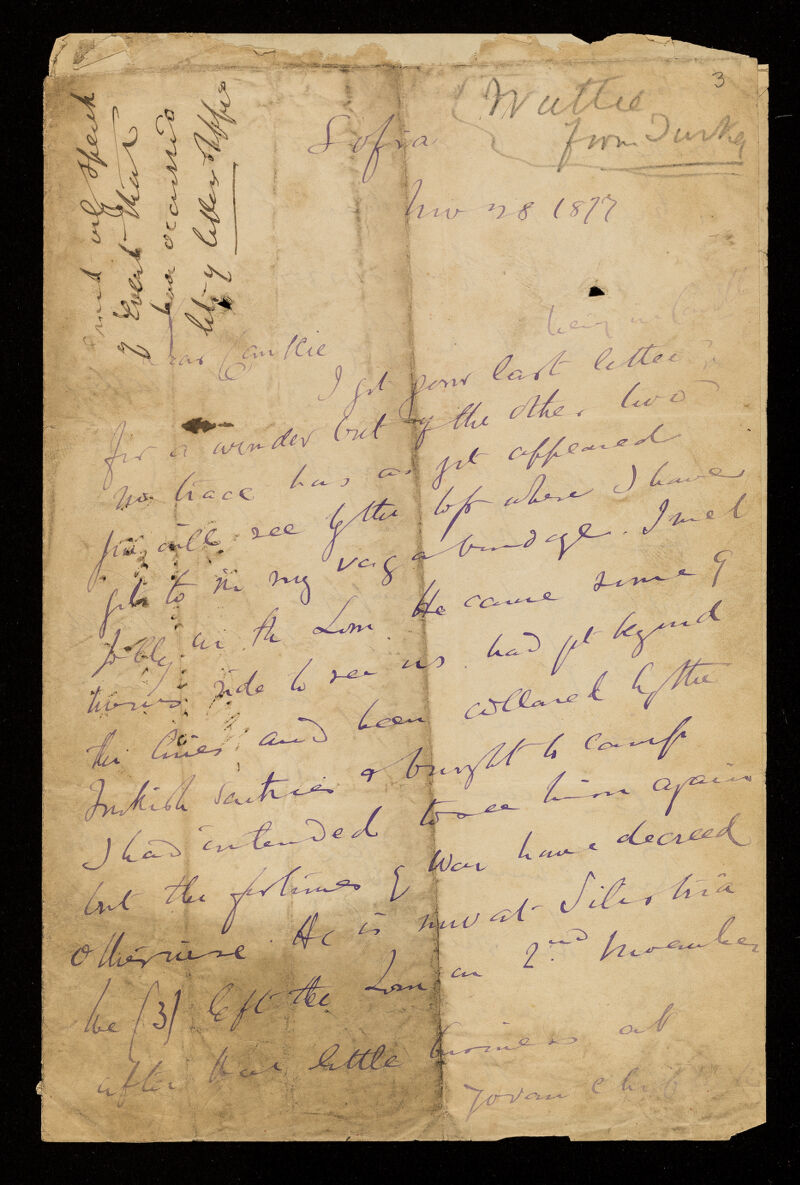 3
Wattie
from Turkey
Sofia
Nov 28 1877
of Event that
have occurred
letter stopped
Dear Cankie
I got your last letter
for a wonder but of the other two
no trace has as yet appeared
you will see by the top where I have
got to in my vagabondage. I met
Jolly in the Lom. He came some 9
hours ride to see us had got beyond
the lines and been collared by the
Turkish sentries & brought to camp
I had intended to see him again
but the fortunes of War have decreed
otherwise. He is now at Silistria
We (3) left the Lom on 2nd November
after that little business at
Jovan